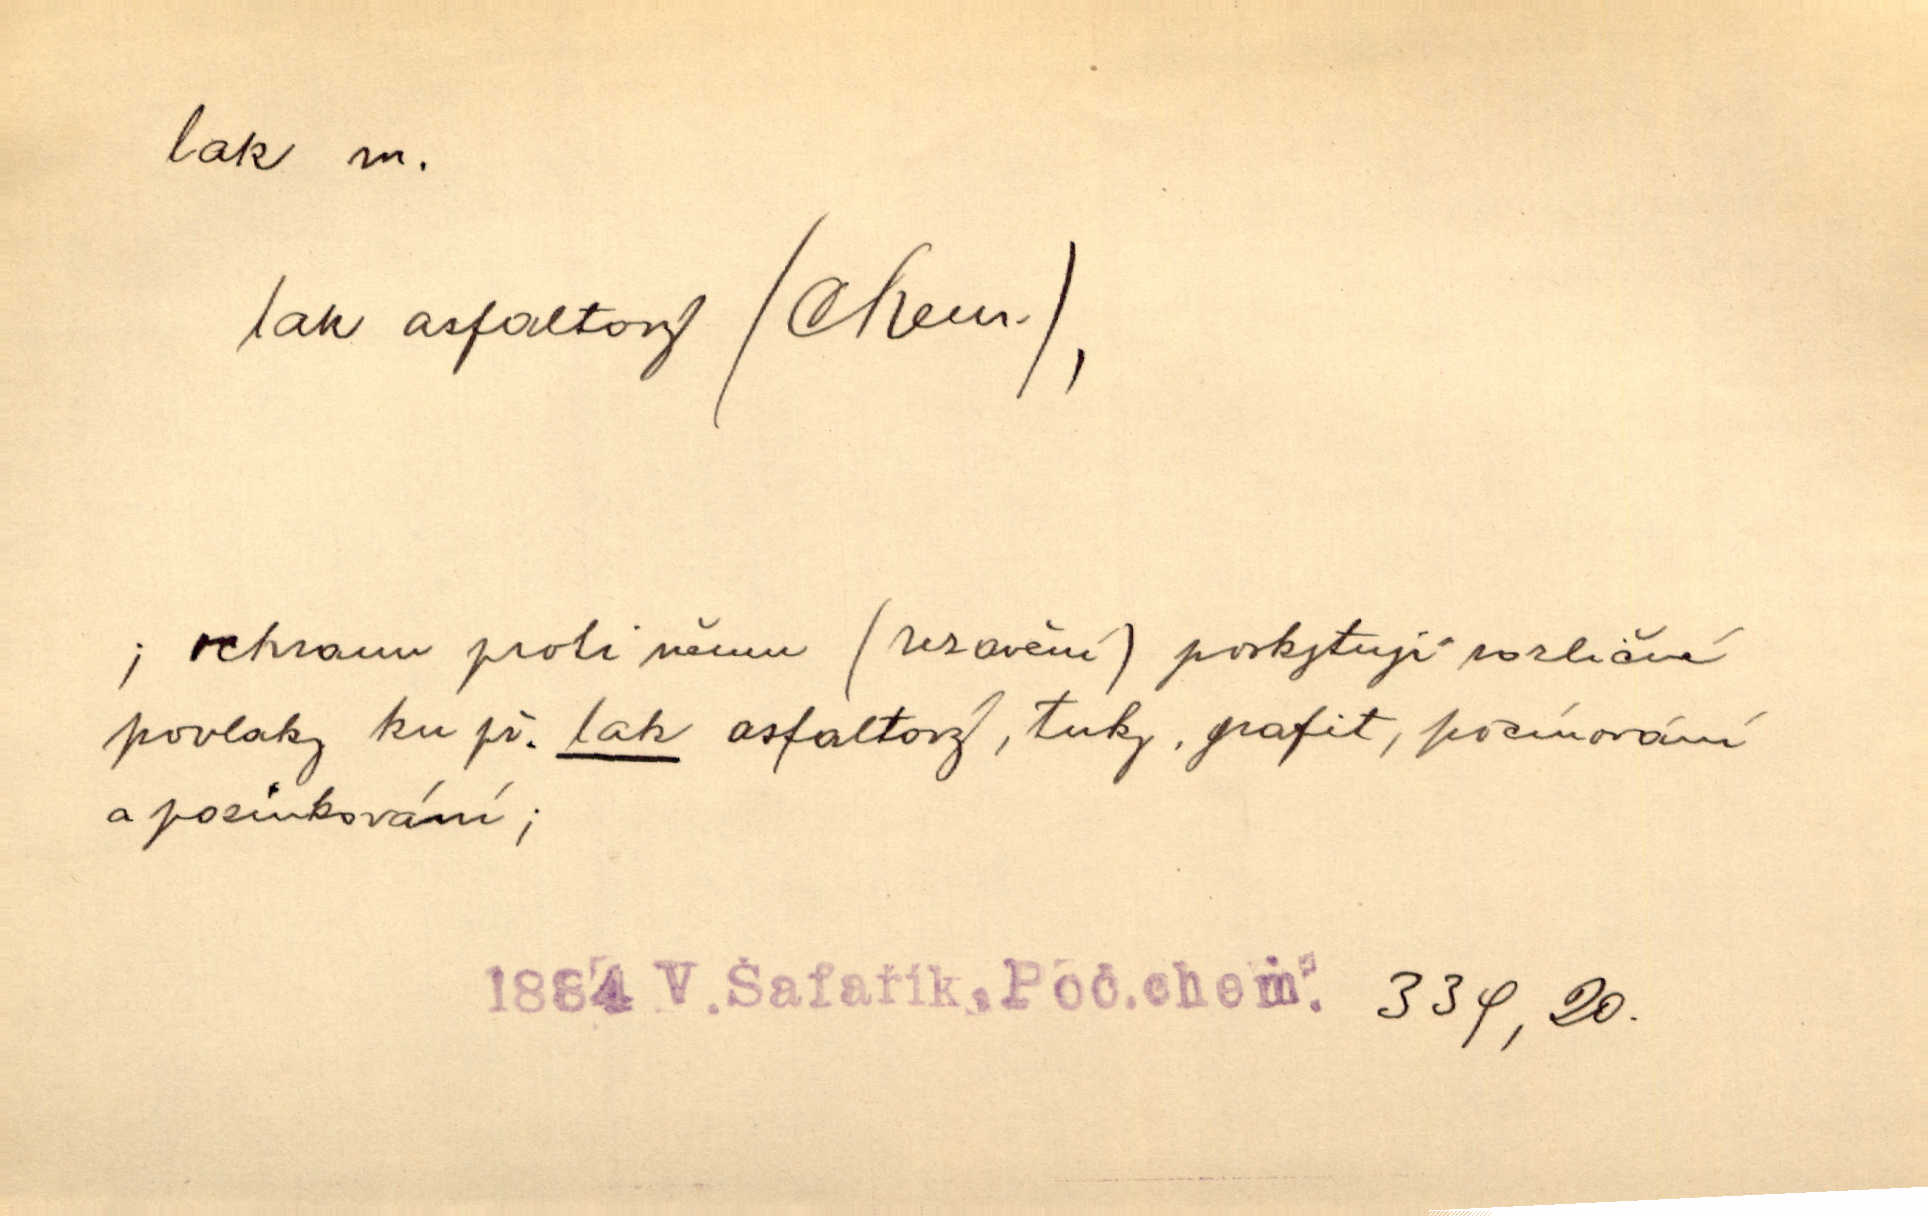 lak m.
lak asfaltový (Chem.),
; ochranu proti němu (rezavění) poskytují rozličné
povlaky ku př. lak asfaltový, tuky, grafit, pocínování
a pozinkování;
1884 V. Šafařík, Poč. chem. 339, 20.